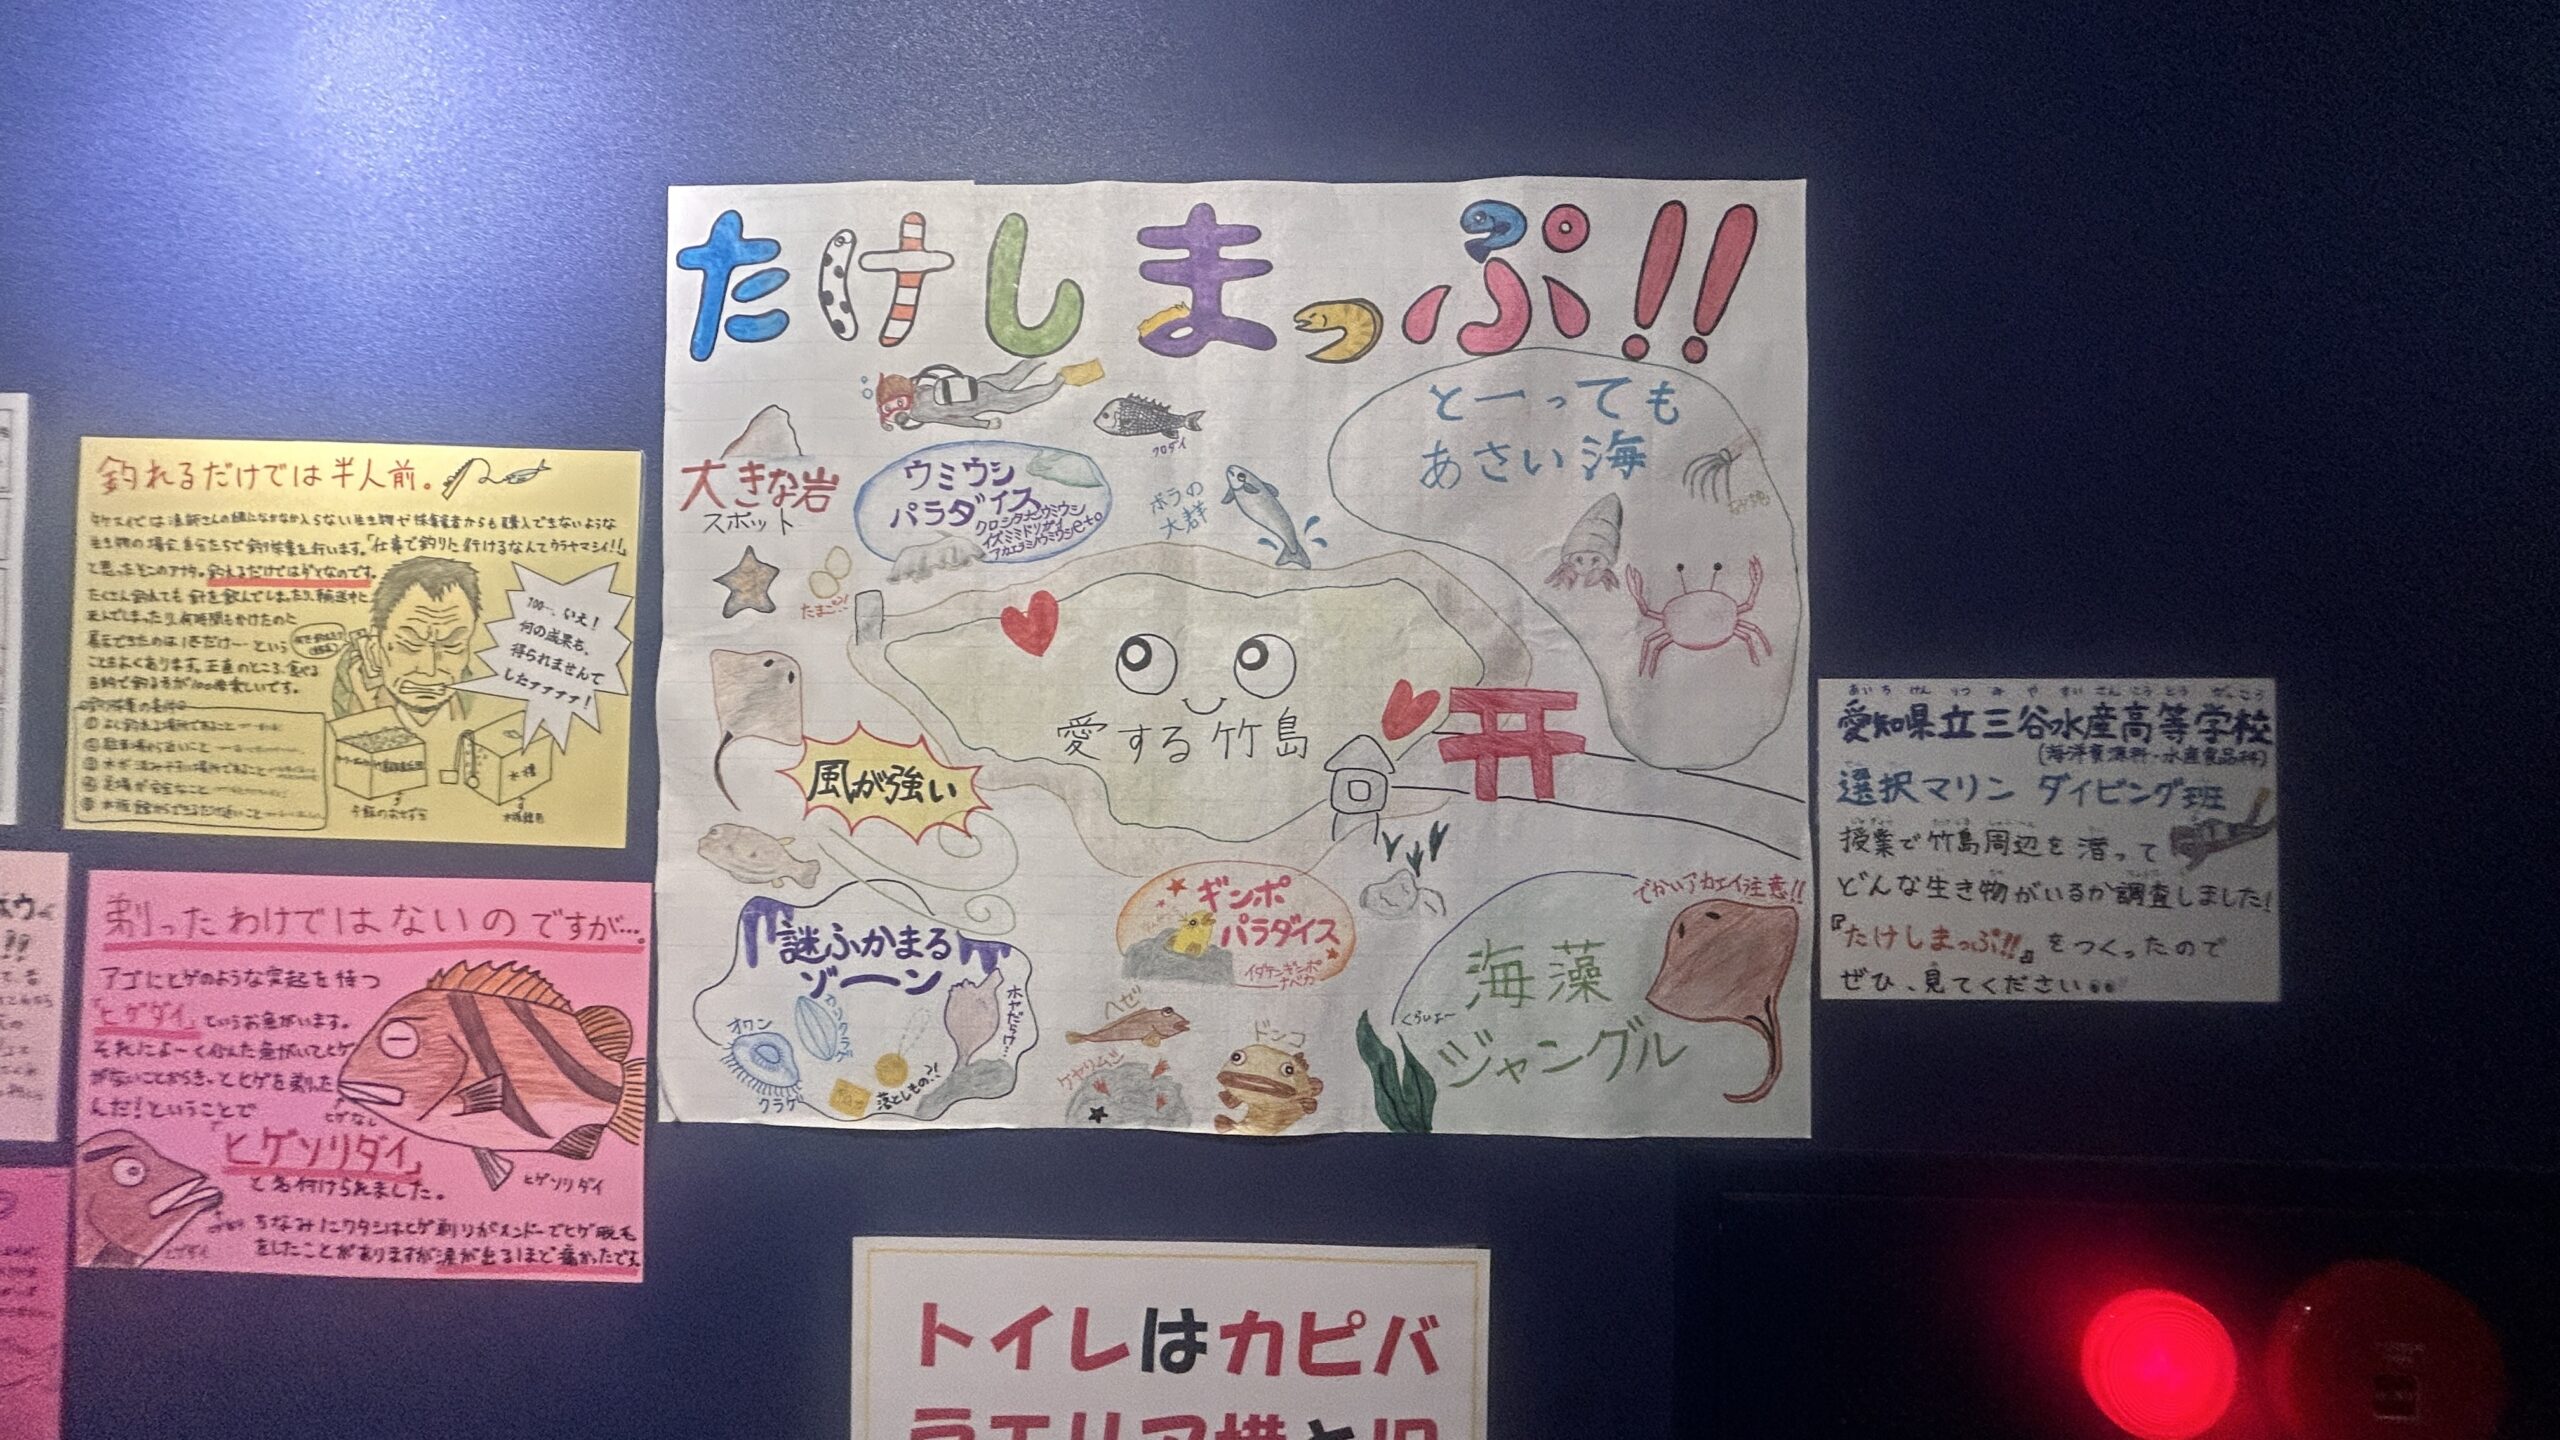 たけしまっぷ!!
大きな岩
スポット
ウミウシ
パラダイス
クロシタナシウミウシ
イズミミドリガイ
アカエラミノウミウシetc
クロダイ
ボラの
大群
とーっても
あさい海
たまご?!
愛する竹島
風が強い
謎ふかまる
ゾーン
オワン
クラゲ
カブトクラゲ
落としもの?!
ホヤだらけ…
ギンポ
パラダイス
イダテンギンポ
ナベカ
ハゼ
ケヤリムシ
ドンコ
でかいアカエイ注意!!
海藻
ジャングル
くらいよ〜
釣れるだけでは半人前。
生き物の場合、自分たちで釣り採集を行います。「仕事で釣りに行けるなんてウラヤマシイ!!」
と思ったそこのアナタ。釣れるだけではダメなのです。
たくさん釣れても針を飲んでしまったり、輸送中に
死んでしまったり、何時間もかけたのに
展示できたのは1匹だけ…という
ことはよくあります。正直のところ、食べる
目的で釣る方が100倍楽しいです。
100…、いえ!
何の成果も、
得られませんで
したァァァァ!
① よく釣れる場所であること
② 駐車場から近いこと
④ 足場が安全なこと
水槽
剃ったわけではないのですが…。
アゴにヒゲのような突起を持つ
「ヒゲダイ」というお魚がいます。
それによーく似た魚がいてヒゲ
がないことからきっとヒゲを剃った
んだ!ということで
「ヒゲソリダイ」
と名付けられました。
ヒゲなし
ヒゲソリダイ
ヒゲダイ
ちなみにワタシはヒゲ剃りがメンドーでヒゲ脱毛
をしたことがありますが涙が出るほど痛かったです。
あいちけんりつみやすいさんこうとうがっこう
愛知県立三谷水産高等学校
(海洋資源科・水産食品科)
選択マリン ダイビング班
授業で竹島周辺を潜って
どんな生き物がいるか調査しました!
『たけしまっぷ!!』をつくったので
ぜひ、見てください
トイレはカピバ
ラエリア横と1F